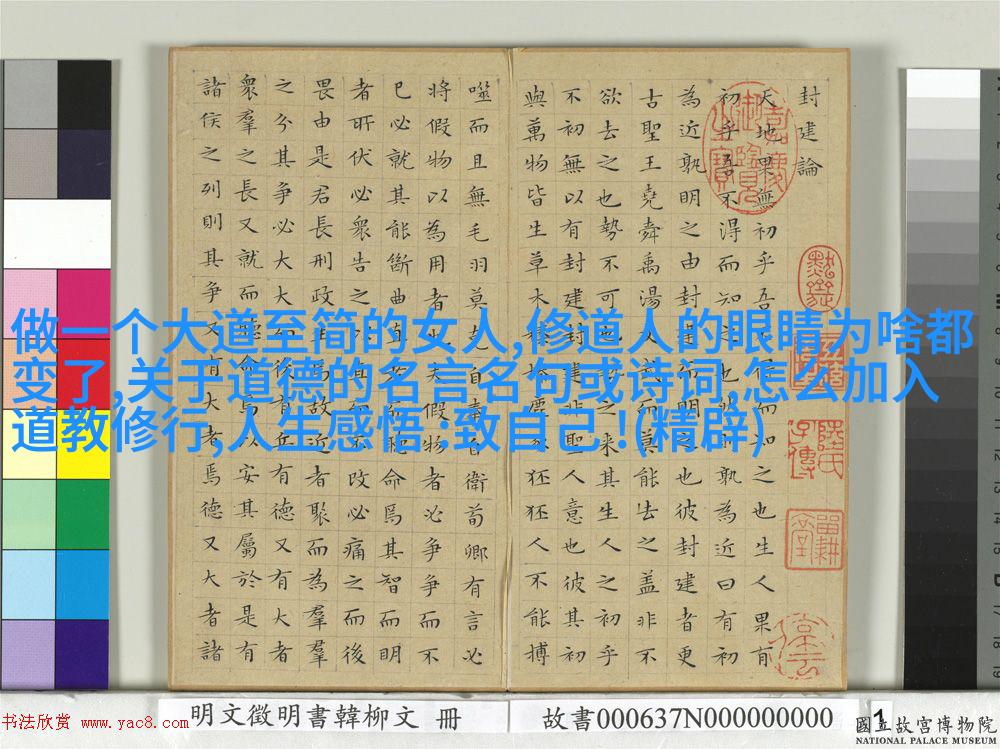 封建論
天地果無初乎吾不得而知之也生人果有
初乎吾不得而知之也然則孰為近曰有初
為近孰明之由封建而明之也彼封建者更
古聖王堯舜禹湯文武而莫能去之蓋非不
欲去之也勢不可也勢之來其生人之初乎
不初無以有封建封建非聖人意也彼其初
與萬物皆生草木榛榛鹿豕狉狉人不能搏
噬而且無毛羽莫克自奉自衛荀卿有言必
將假物以為用者也夫假物者必爭爭而不
已必就其能斷曲直者而聽命焉其智而明
者所伏必衆告之以直而不改必痛之而後
畏由是君長刑政生焉故近者聚而為羣
之分其爭必大大而後有兵有德又有大者
衆羣之長又就而聽命焉以安其屬於是有
諸侯之列則其爭又有大者焉德又大者諸
做一个大道至简的女人,修道人的眼睛为啥都
变了,关于道德的名言名句或诗词,怎么加入
道教修行,人生感悟·致自己!(精辟)
书法欣赏 www.yac8.com
明文徵明書韓柳文 冊
故書000637N000000000
1
國立故宮博物院
NATIONAL PALACE MUSEUM